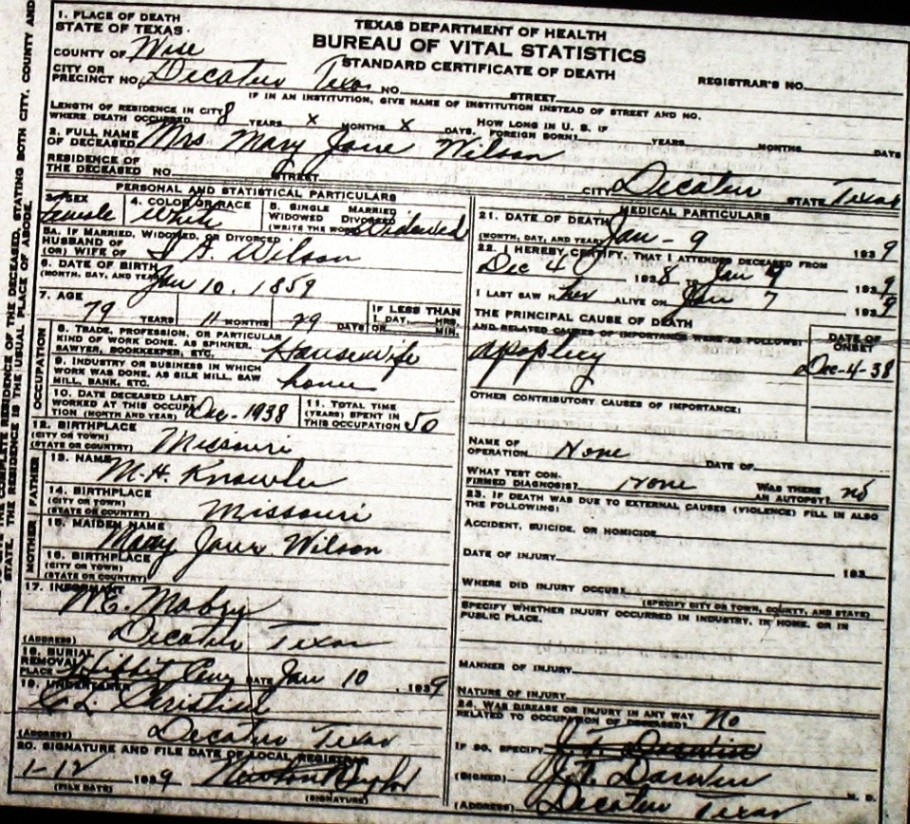 TEXAS DEPARTMENT OF HEALTH
BUREAU OF VITAL STATISTICS
STANDARD CERTIFICATE OF DEATH
1. PLACE OF DEATH
STATE OF TEXAS
COUNTY OF Wise
CITY OR
PRECINCT NO. Decatur Texas NO. STREET
REGISTRAR'S NO.
IF IN AN INSTITUTION, GIVE NAME OF INSTITUTION INSTEAD OF STREET AND NO.
LENGTH OF RESIDENCE IN CITY
WHERE DEATH OCCURRED 8 YEARS X MONTHS X DAYS. HOW LONG IN U. S. IF FOREIGN BORN? YEARS MONTHS DAYS
2. FULL NAME
OF DECEASED Mrs Mary Jane Wilson
RESIDENCE OF
THE DECEASED NO. STREET CITY Decatur STATE Texas
PERSONAL AND STATISTICAL PARTICULARS
3. SEX
Female
4. COLOR OR RACE
White
5. SINGLE MARRIED
WIDOWED DIVORCED
(WRITE THE WORD) Widowed
5A. IF MARRIED, WIDOWED, OR DIVORCED
HUSBAND OF
(OR) WIFE OF Wilson
6. DATE OF BIRTH
(MONTH, DAY, AND YEAR) Jan 10. 1859
7. AGE
79 YEARS 11 MONTHS 29 DAYS
IF LESS THAN
1 DAY, HRS.
OR MIN.
OCCUPATION
8. TRADE, PROFESSION, OR PARTICULAR
KIND OF WORK DONE, AS SPINNER,
SAWYER, BOOKKEEPER, ETC. Housewife
9. INDUSTRY OR BUSINESS IN WHICH
WORK WAS DONE, AS SILK MILL, SAW
MILL, BANK, ETC. home
10. DATE DECEASED LAST
WORKED AT THIS OCCUPATION (MONTH AND YEAR) Dec - 1938
11. TOTAL TIME
(YEARS) SPENT IN
THIS OCCUPATION 50
12. BIRTHPLACE
(CITY OR TOWN)
(STATE OR COUNTRY) Missouri
FATHER
13. NAME
M. H.
14. BIRTHPLACE
(CITY OR TOWN)
(STATE OR COUNTRY) Missouri
MOTHER
15. MAIDEN NAME
Mary Jane Wilson
16. BIRTHPLACE
(CITY OR TOWN)
(STATE OR COUNTRY)
17. INFORMANT
Mabry
(ADDRESS) Decatur Texas
18. BURIAL
REMOVAL
PLACE DATE Jan 10, 1939
19. UNDERTAKER
(ADDRESS) Decatur Texas
20. SIGNATURE AND FILE DATE OF LOCAL REGISTRAR
1-12 1939
(FILE DATE) (SIGNATURE)
MEDICAL PARTICULARS
21. DATE OF DEATH
(MONTH, DAY, AND YEAR) Jan - 9 1939
22. I HEREBY CERTIFY, THAT I ATTENDED DECEASED FROM
Dec 4 1938 to Jan 9 1939
I LAST SAW her ALIVE ON Jan 7 1939
THE PRINCIPAL CAUSE OF DEATH
AND RELATED CAUSES OF IMPORTANCE WERE AS FOLLOWS:
DATE OF
ONSET
Dec-4-38
OTHER CONTRIBUTORY CAUSES OF IMPORTANCE:
NAME OF
OPERATION None DATE OF
WHAT TEST CON-
FIRMED DIAGNOSIS? none WAS THERE
AN AUTOPSY? no
23. IF DEATH WAS DUE TO EXTERNAL CAUSES (VIOLENCE) FILL IN ALSO
THE FOLLOWING:
ACCIDENT, SUICIDE, OR HOMICIDE
DATE OF INJURY 193
WHERE DID INJURY OCCUR?
(SPECIFY CITY OR TOWN, COUNTY, AND STATE)
SPECIFY WHETHER INJURY OCCURRED IN INDUSTRY, IN HOME, OR IN
PUBLIC PLACE.
MANNER OF INJURY
NATURE OF INJURY
24. WAS DISEASE OR INJURY IN ANY WAY
RELATED TO OCCUPATION OF DECEASED? No
IF SO, SPECIFY
(SIGNED) Darwin M. D.
(ADDRESS) Decatur Texas
THE COMPLETE RESIDENCE OF THE DECEASED, STATING BOTH CITY, COUNTY AND
STATE. THE RESIDENCE IS THE USUAL PLACE OF ABODE.